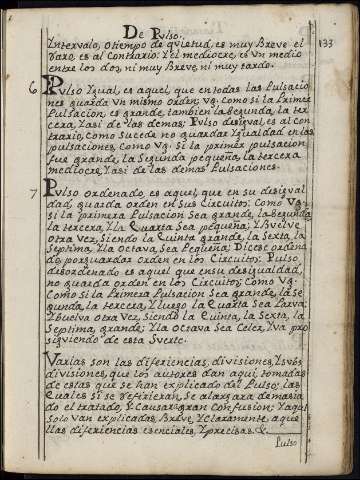 De Pulso.
133
Yntervalo, o tiempo de quietud, es muy Breve el
raro, es al Contrario: Y el mediocre, es Vn medio
entre los dos, ni muy Breve, ni muy tardo.
6 Pulso Ygual, es aquel, que en todas las Pulsacio
nes guarda Vn mismo orden, Vg. Como si la Primer
Pulsacion, es grande, tambien la Segunda, la ter
cera, Y asi de las demas: Pulso desigual, es al con
trario, Como Sucede no guardar Ygualdad en las
pulsaciones, Como Vg. Si la primer pulsacion
fue grande, la Segunda pequeña, la tercera
mediocre, Y asi de las demas Pulsaciones.
7 Pulso ordenado, es aquel, que en su desigual
dad, guarda orden en sus Circuitos: Como Vg.
si la primera Pulsacion Sea grande, la Segunda,
la tercera, Y la Quarta Sea pequeña; Y Buelve
otra Vez, Siendo la Quinta grande, la Sexta, la
Septima, Y la Octava, Sea Pequeña; Dicese ordena
do, por guardar orden en los Circuitos: Pulso
desordenado es aquel que en su desigualdad,
no guarda orden en los Circuitos; Como Vg.
Como si la Primera Pulsacion Sea grande, la Se
gunda, la tercera, Y luego la Quarta Sea Parva;
Y Buelva otra Vez, Siendo la Quinta, la Sexta, la
Septima, grande; Y la Octava Sea Celer, Y va pro
siguiendo de esta Suerte.
Varias son las diferiencias, divisiones, Y sub
divisiones, que los autores dan aqui, tomadas
de estas que se han explicado del Pulso; las
Quales si se refirieran, Se alargara demasia
do el tratado, Y Causara gran Confusion; Y aqui
solo van explicadas, Breve, Y Claramente, aque
llas diferiencias esenciales, Y precisas &.
Pulso